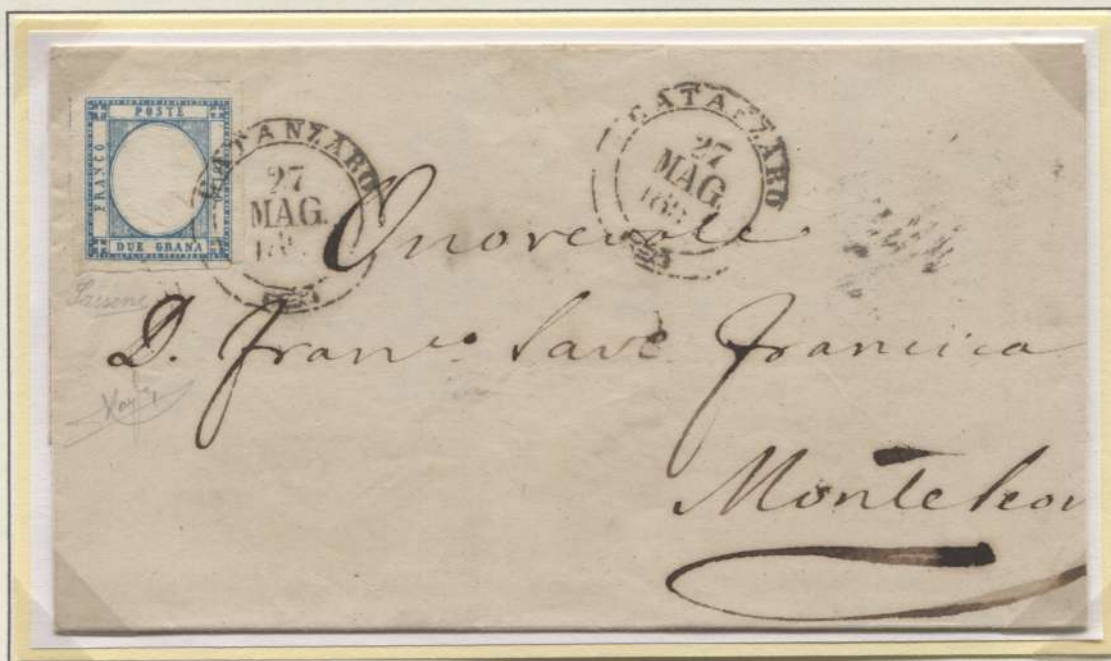 POSTE
FRANCO
DUE GRANA
CATANZARO
27
MAG.
CATANZARO
27
MAG.
Onorevole
D. Franco Savo Francica
Monteleon